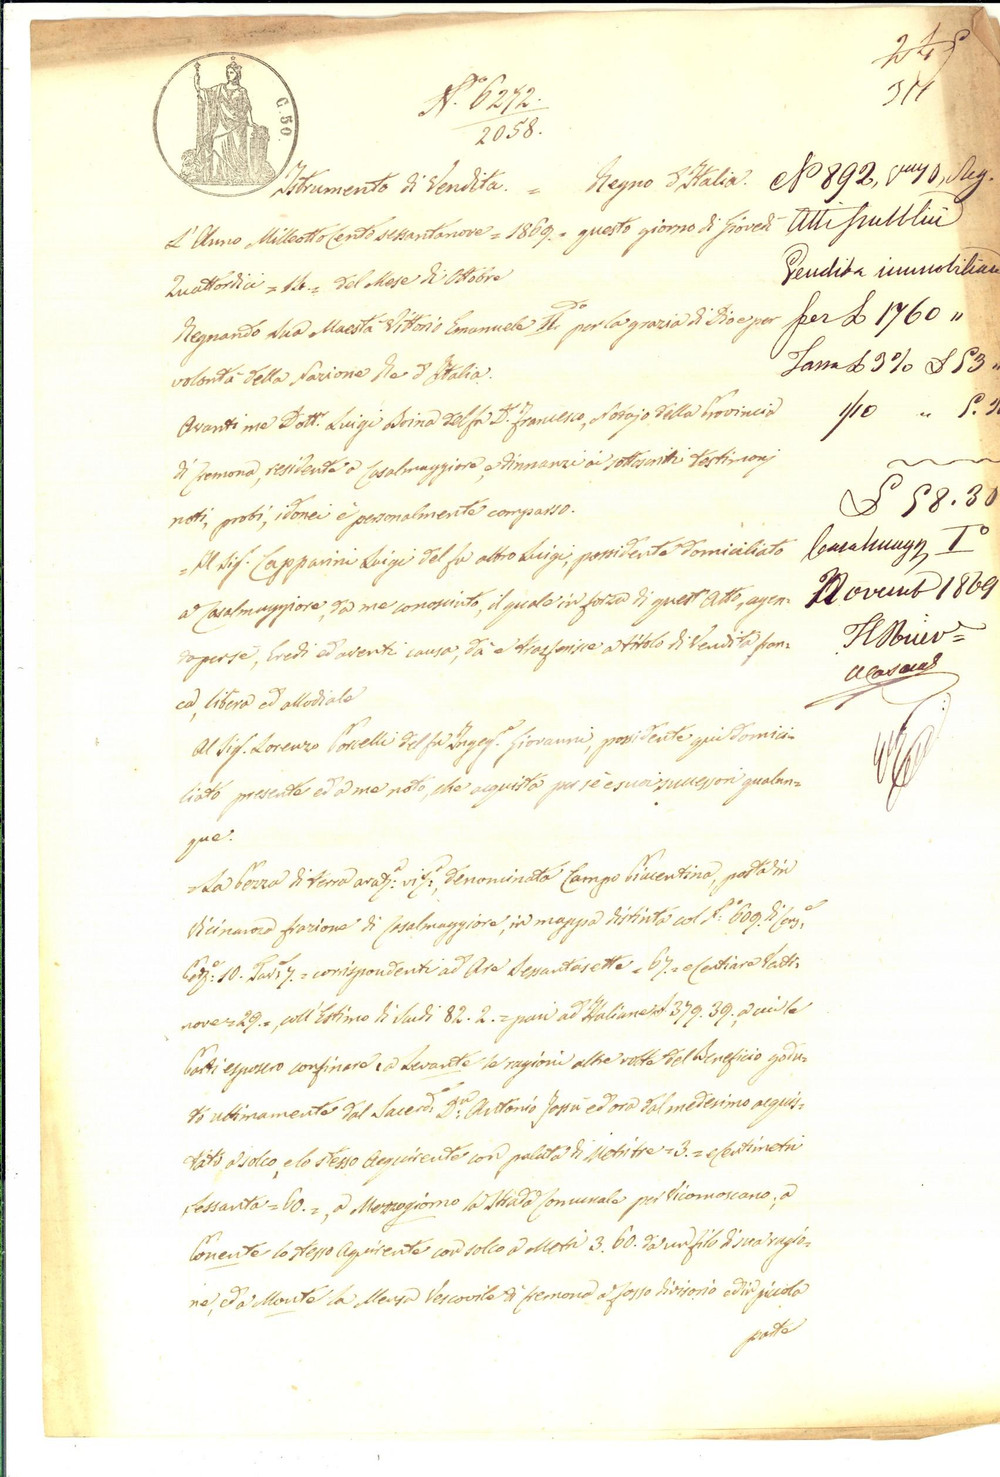 C. 50.
N.° 6272.
2058.
Istrumento di Vendita. = Regno d'Italia.
L'Anno Milleottocentosessantanove = 1869. = questo giorno di Giovedì
Quattordici = 14. = del Mese di Ottobre
Regnando Sua Maestà Vittorio Emanuele II.do per la grazia di Dio e per
volontà della Nazione Re d'Italia.
Avanti me Dott.r Luigi Boina del fu D.r Francesco, Notajo della Provincia
di Cremona, residente a Casalmaggiore, e dinnanzi ai sottoscritti testimonj
noti, probi, idonei è personalmente comparso.
= Il Sig.r Capparini Luigi del fu altro Luigi, possidente domiciliato
a Casalmaggiore, da me conosciuto, il quale in forza di quest'Atto, agen-
do per se, Eredi ed aventi causa, dà e trasferisce a titolo di Vendita fran-
ca, libera ed allodiale
Al Sig.r Lorenzo Porcelli del fu Ingeg.r Giovanni, possidente qui domici-
liato presente ed a me noto, che acquista per sè e suoi successori qualun-
que.
= La Pezza di terra arat.a: vit.a:, denominata Campo Piacentina, posta in
Vicinanza frazione di Casalmaggiore, in mappa distinta col N.° 609. di
Pert.e 10. Tav.e 7. = corrispondenti ad Are Sessantasette = 67. = e Centiare Venti-
nove = 29. =, coll'Estimo di Scudi 82. 2. = pari ad Italiane £ 379. 39. a cui le
Parti esposero confinare a Levante le ragioni altre volte del Beneficio godu-
to ultimamente dal Sacerd.e D.n Antonio ed ora dal medesimo acquis-
tato a solco, e lo stesso Acquirente con palata di Metri tre = 3. = e Centimetri
sessanta = 60. =, a Mezzogiorno la Strada Comunale per Vicomoscano, a
Ponente lo stesso Acquirente con solco a Metri 3. 60. da un filo di sua ragio-
ne, ed a Monte la Mensa Vescovile di Cremona a fosso divisorio ed in picola
parte
N° 892, Reg.
Atti pubblici
Vendita immobiliare
per £ 1760 "
Tassa £ 3% £ 53 "
1/10 " 5.3
£ 58.30
Casalmagg. I°
Novemb 1869
Il Ricev=